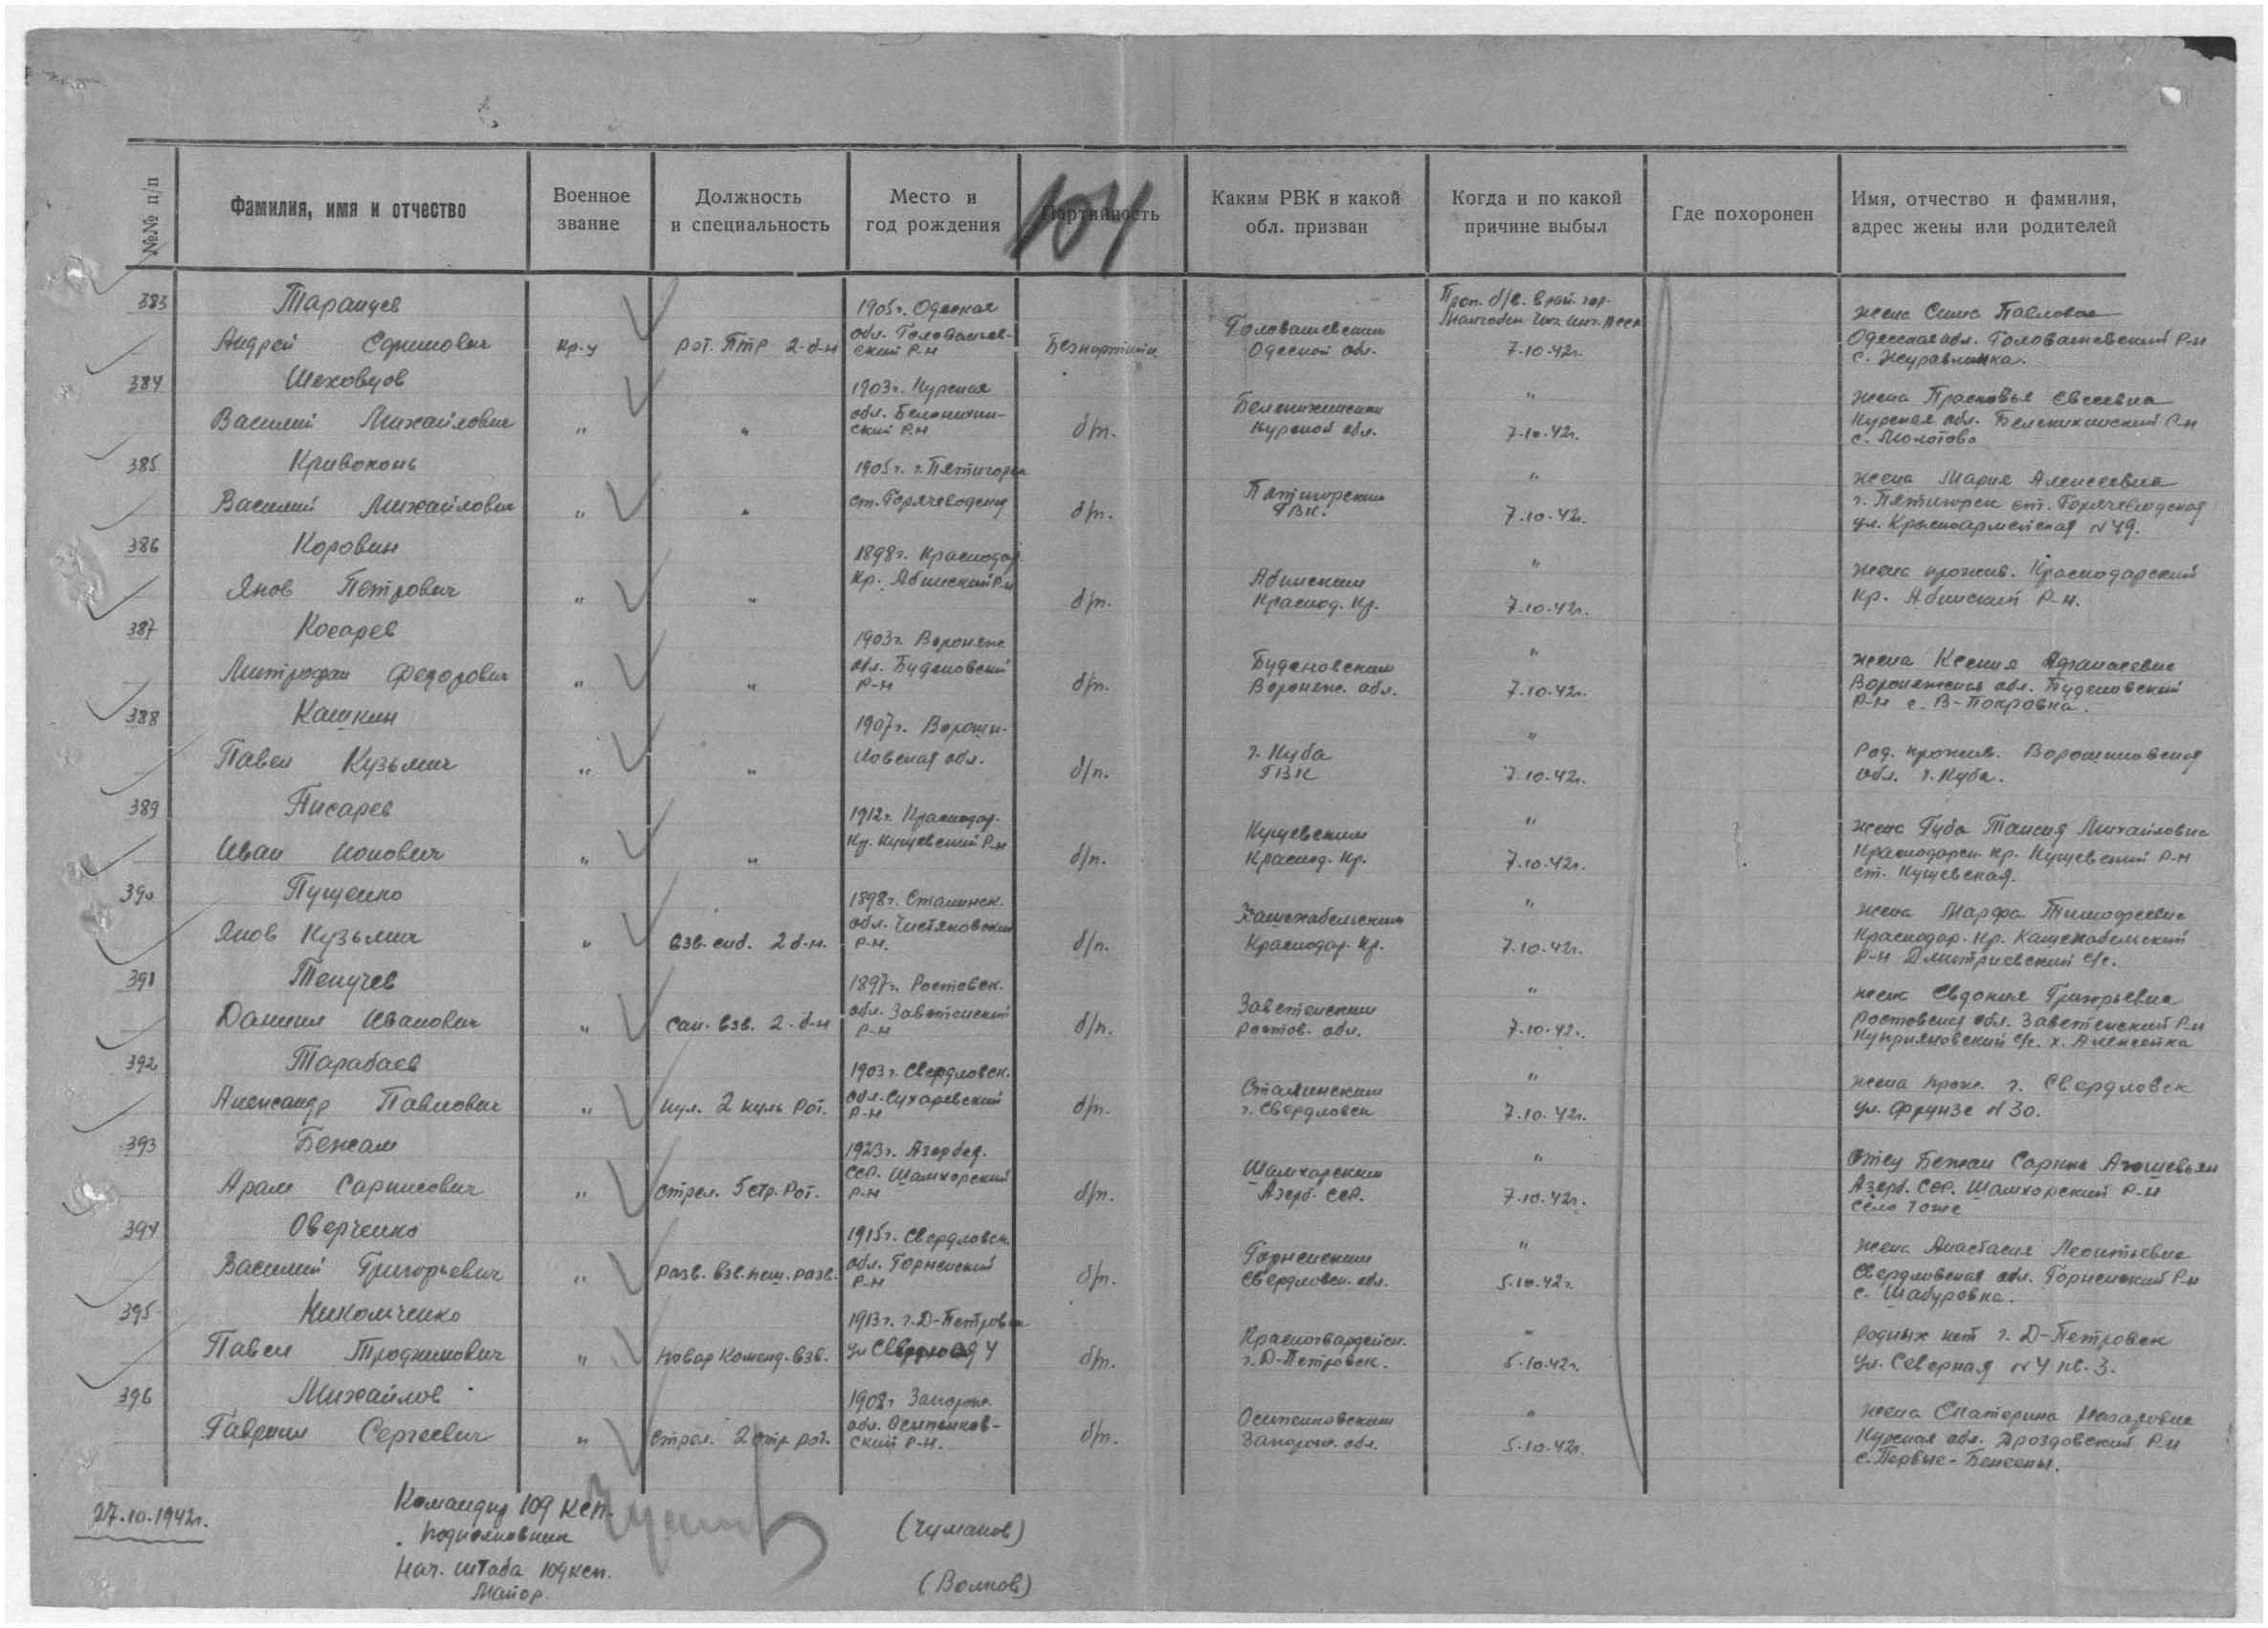 104
№№ п/п
Фамилия, имя и отчество
Военное звание
Должность и специальность
Место и год рождения
Партийность
Каким РВК и какой обл. призван
Когда и по какой причине выбыл
Где похоронен
Имя, отчество и фамилия, адрес жены или родителей
383 Таранцев 1905г. Одесская Проп. б/в. в рай. гор.
Андрей Ефимович кр-ц рот. ПТР 2-б-н обл. Головашев-ский р-н Безпартийн. Головашевским Одесской обл. 7-10-42г.
жена Сима Павловна
Одесская обл. Головашевский р-н
с. Журавлинка.
384 Шеховцов 1903г. Курская "
Василий Михайлович " " обл. Беленихин-ский р-н б/п. Беленихинским Курской обл. 7-10-42г.
жена Прасковья Евсеевна
Курская обл. Беленихинский р-н
с. Молотово
385 Кривоконь 1905г. г. Пятигорск "
Василий Михайлович " " ст. Горячеводская б/п. Пятигорским ГВК. 7-10-42г.
жена Мария Алексеевна
г. Пятигорск ст. Горячеводская
ул. Красноармейская №49.
386 Коровин 1898г. Краснодар. "
Яков Петрович " " кр. Абинский р-н б/п. Абинским Краснод. кр. 7-10-42г.
жена прожив. Краснодарский
кр. Абинский р-н.
387 Косарев 1903г. Воронеж. "
Митрофан Федорович " " обл. Буденовский р-н б/п. Буденовским Воронеж. обл. 7-10-42г.
жена Ксения Афанасевна
Воронежская обл. Буденовский
р-н с. В-Покровка.
388 Кашкин 1907г. Вороши- "
Павел Кузьмич " " ловская обл. б/п. г. Куба ГВК 7-10-42г.
Род. прожив. Ворошиловская
обл. г. Куба.
389 Писарев 1912г. Краснодар. "
Иван Ионович " " кр. Кущевский р-н б/п. Кущевским Краснод. кр. 7-10-42г.
жена Губа Таисия Михайловна
Краснодарск. кр. Кущевский р-н
ст. Кущевская.
390 Пущенко 1898г. Сталинск. "
Яков Кузьмич " взв. снаб. 2 б-н. обл. Чистяковский р-н. б/п. Кашехабельским Краснодар. кр. 7-10-42г.
жена Марфа Тимофеевна
Краснодар. кр. Кашехабельский
р-н Дмитриевский с/с.
391 Текучев 1897г. Ростовск. "
Даниил Иванович " сан. взв. 2-б-н обл. Заветенский р-н б/п. Заветенским Ростов. обл. 7-10-42г.
жена Евдокия Григорьевна
Ростовская обл. Заветенский р-н
Куприяновский с/с. х. Алексейка
392 Тарабаев 1903г. Свердловск. "
Александр Павлович " пул. 2 пуль рот. обл. Сухаревский р-н б/п. Сталинским г. Свердловск 7-10-42г.
жена прож. г. Свердловск
ул. Фрунзе №30.
393 Бежам 1923г. Азербед. "
Арам Саркисович " стрел. 5 стр. рот. ССР. Шамхорский р-н б/п. Шамхорским Азерб. ССР. 7-10-42г.
Азерб. ССР. Шамхорский р-н
село тоже
394 Оверченко 1915г. Свердловск. "
Василий Григорьевич " разв. взв. пеш. разв. обл. Горненский р-н б/п. Горненским Свердловск. обл. 5-10-42г.
жена Анастасия Леонтьевна
Свердловская обл. Горненский р-н
с. Шабуровка.
395 Никольченко 1913г. г. Д-Петровск "
Павел Трофимович " повар команд. взв. б/п. Красногвардейск. г. Д-Петровск. 5-10-42г.
родных нет г. Д-Петровск
ул. Северная №4 кв. 3.
396 Михайлов 1908г Запорож. "
Гавриил Сергеевич " стрел. 2 стр. рот. обл. Осипенков-ский р-н. б/п. Осипенковским Запорож. обл. 5-10-42г.
жена Екатерина Назаровна
Курская обл. Дроздовский р-н
с. Первые-
27.10.1942г.
Командир 109 ксп.
подполковник (Чуманов)
Нач. штаба 109 ксп.
Майор. (Волков)